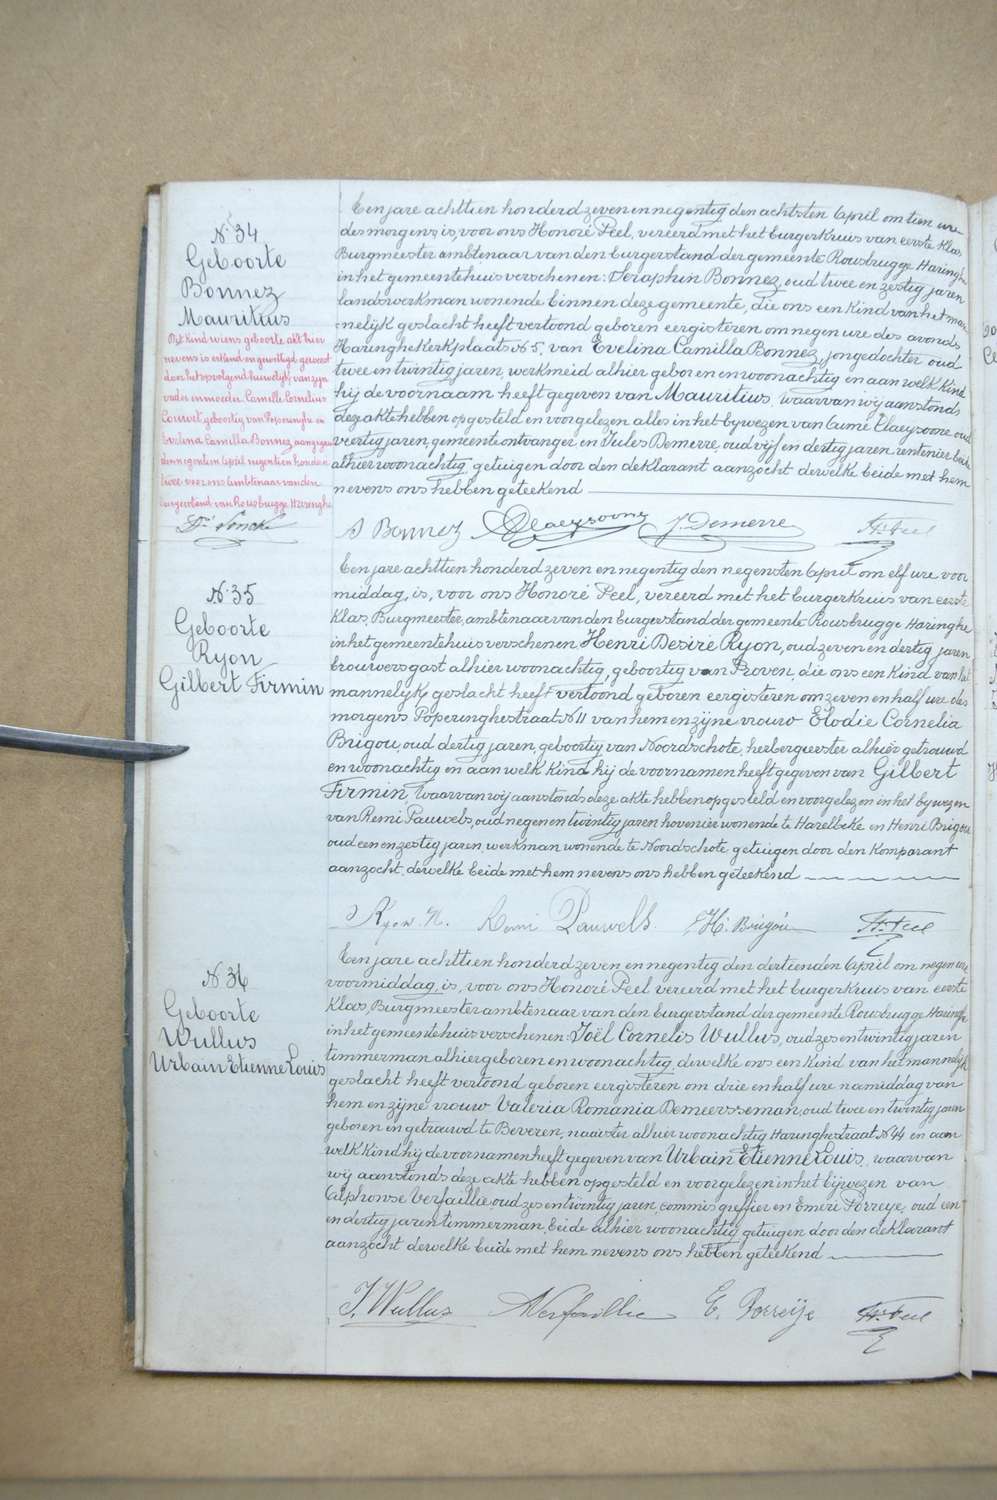 N. 34
Geboorte
Bonnez
Mauritius
Het kind wiens geboorte akt hier
nevens is erkend en gewettigd geweest
door het opvolgend huwelijk van zijn
vader en moeder Camille Cornelius
geboortig van Poperinghe en
Evelina Camilla Bonnez aangegaan
den negentien April negentien honderd
twee voor ons Ambtenaar van den
burgerstand van Rousbrugge Haringhe
Een jare achttien honderd zeven en negentig den achtsten April om tien ure
des morgens, is, voor ons Honoré Peel, vereerd met het burgerkruis van eerste Klas
Burgmeester ambtenaar van den burgerstand der gemeente Rousbrugge Haringhe
in het gemeentehuis verschenen: Seraphin Bonnez, oud twee en zestig jaren
landswerkman wonende binnen deze gemeente, die ons een kind van het man-
nelijk geslacht heeft vertoond geboren eergisteren om negen ure des avonds
Haringhe Kerkplaats N 5, van Evelina Camilla Bonnez, jongedochter oud
twee en twintig jaren, werkmeid alhier geboren en woonachtig en aan welk kind
hij de voornaam heeft gegeven van Mauritius waarvan wij aanstonds
deze akte hebben opgesteld en voorgelezen alles in het bijwezen van Cumé Claeysoone oud
veertig jaren, gemeente ontvanger en Jules Demerre, oud vijf en dertig jaren rentenier beide
alhier woonachtig, getuigen door den deklarant aanzocht derwelke beide met hem
nevens ons hebben geteekend
S Bonnez Claeysoone J. Demerre H. Peel
N. 35
Geboorte
Ryon
Gilbert Firmin
Een jare achttien honderd zeven en negentig den negensten April om elf ure voor
middag, is, voor ons Honoré Peel, vereerd met het burgerkruis van eerste
Klas, Burgmeester, ambtenaar van den burgerstand der gemeente Rousbrugge Haringhe
in het gemeentehuis verschenen Henri Desiré Ryon, oud zeven en dertig jaren
brouwersgast alhier woonachtig, geboortig van Proven, die ons een kind van het
mannelijk geslacht heeft vertoond geboren eergisteren om zeven en half ure des
morgens Poperinghestraat N 11 van hem en zijne vrouw Elodie Cornelia
Brigou, oud dertig jaren, geboortig van Noordschote, herbergierster alhier getrouwd
en woonachtig en aan welk kind hij de voornamen heeft gegeven van Gilbert
Firmin waarvan wij aanstonds deze akte hebben opgesteld en voorgelezen in het bijwezen
van Remi Pauwels, oud negen en twintig jaren hovenier wonende te Harelbeke en Henri Brigou
oud een en zestig jaren, werkman wonende te Noordschote getuigen door den komparant
aanzocht, derwelke beide met hem nevens ons hebben geteekend
Ryon H. Remi Pauwels H. Brigou H. Peel
N. 36
Geboorte
Wullus
Urbain Etienne Louis
Een jare achttien honderd zeven en negentig den dertienden April om negen ure
voormiddag, is, voor ons Honoré Peel vereerd met het burgerkruis van eerste
Klas, Burgmeester ambtenaar van den burgerstand der gemeente Rousbrugge Haringhe
in het gemeentehuis verschenen: Joël Cornelis Wullus, oud zes en twintig jaren
timmerman alhier geboren en woonachtig, derwelke ons een kind van het mannelijk
geslacht heeft vertoond geboren eergisteren om drie en half ure namiddag van
hem en zijne vrouw Valeria Romania Demeersseman, oud twee en twintig jaren
geboren en getrouwd te Beveren, naaister alhier woonachtig Haringhestraat N 44 en aan
welk kind hij de voornamen heeft gegeven van Urbain Etienne Louis, waarvan
wij aanstonds deze akte hebben opgesteld en voorgelezen in het bijwezen van
Alphonse Verfaillie, oud zes en twintig jaren, commis greffier en Emeri Porreye, oud een
en dertig jaren timmerman, beide alhier woonachtig getuigen door den deklarant
aanzocht derwelke beide met hem nevens ons hebben geteekend
J. Wullus A Verfaillie E. Porreye H. Peel